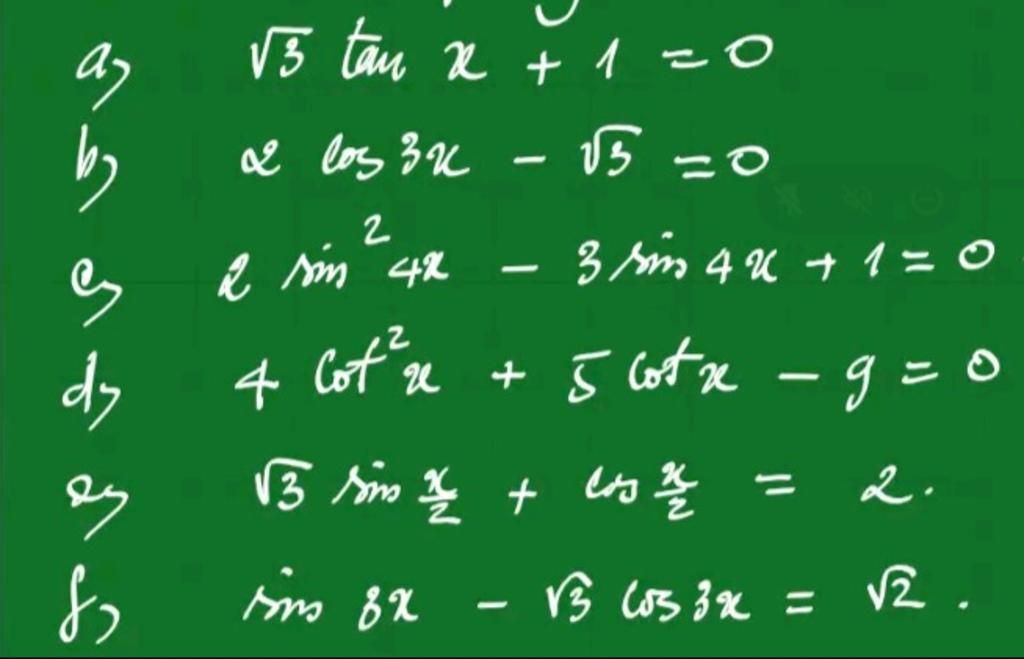 a) √3 tan x + 1 = 0
b) 2 cos 3x - √3 = 0
c) 2 sin² 4x - 3 sin 4x + 1 = 0
d) 4 cot² x + 5 cot x - 9 = 0
e) √3 sin x/2 + cos x/2 = 2.
f) sin 3x - √3 cos 3x = √2.